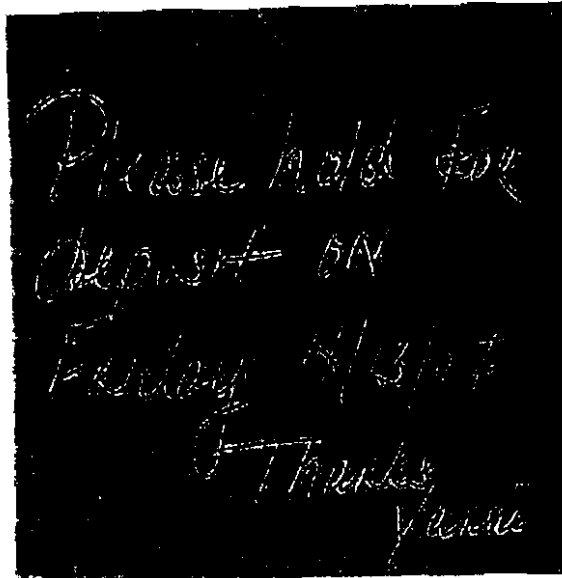 Please hold for
deposit on
Friday 4/13/07
Thanks,